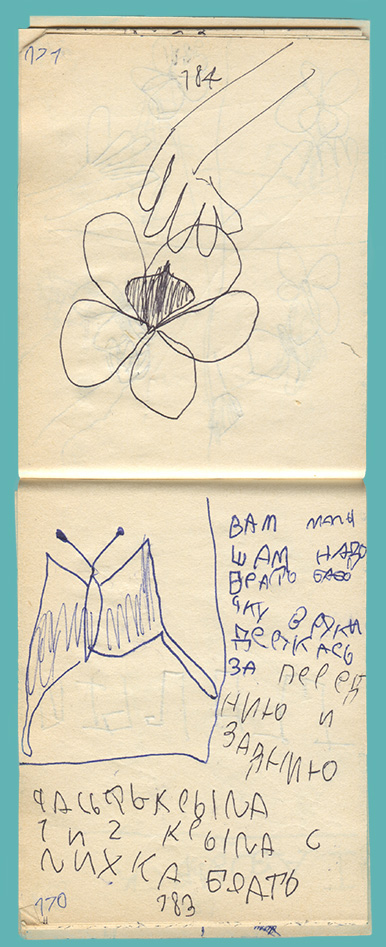 171
184
ВАМ МАЛЫ
ШАМ НАДО
БРАТЬ БАБО
ЧКУ В РУКИ
ДЕРЖАСЬ
ЗА ПЕРЕД
НИЮ И
ЗАДНИЮ
ЧАСЬТЬ КРЫЛА
1 И 2 КРЫЛА С
ЛИХКА БРАТЬ
170
183